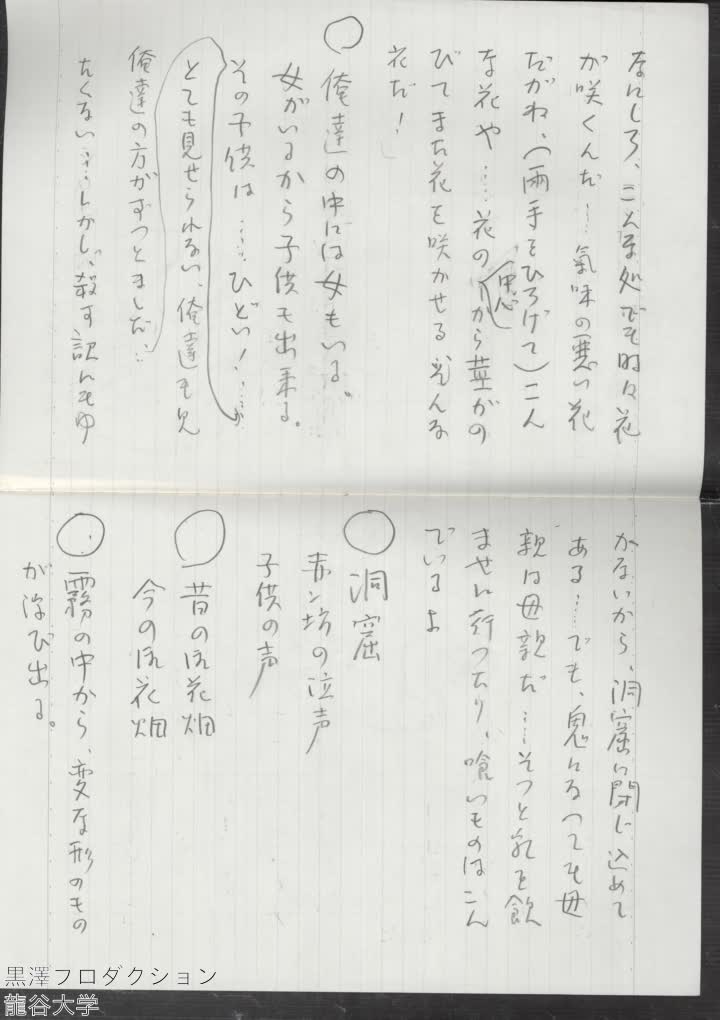 なにしろ、こんな処でも時々花
が咲くんだ……氣味の悪い花
だがね、(両手をひろげて)こん
な花や……花の中心から茎がの
びてまた花を咲かせる そんな
花だ!
○ 俺達の中には女もいる。
女がいるから子供も出来る。
その子供は……ひどい!……
とても見せられない、俺達も見
俺達の方がずっとましだ……
たくない……しかし、殺す訳にもゆ
かないから、洞窟に閉じ込めて
ある……でも、鬼になっても母
親は母親だ……そっと乳を飲
ませに行ったり、喰いものはこん
でいるよ
○ 洞窟
赤ン坊の泣声
子供の声
○ 昔のお花畑
今のお花畑
○ 霧の中から、変な形のもの
が浮び出る。
黒澤プロダクション
龍谷大学